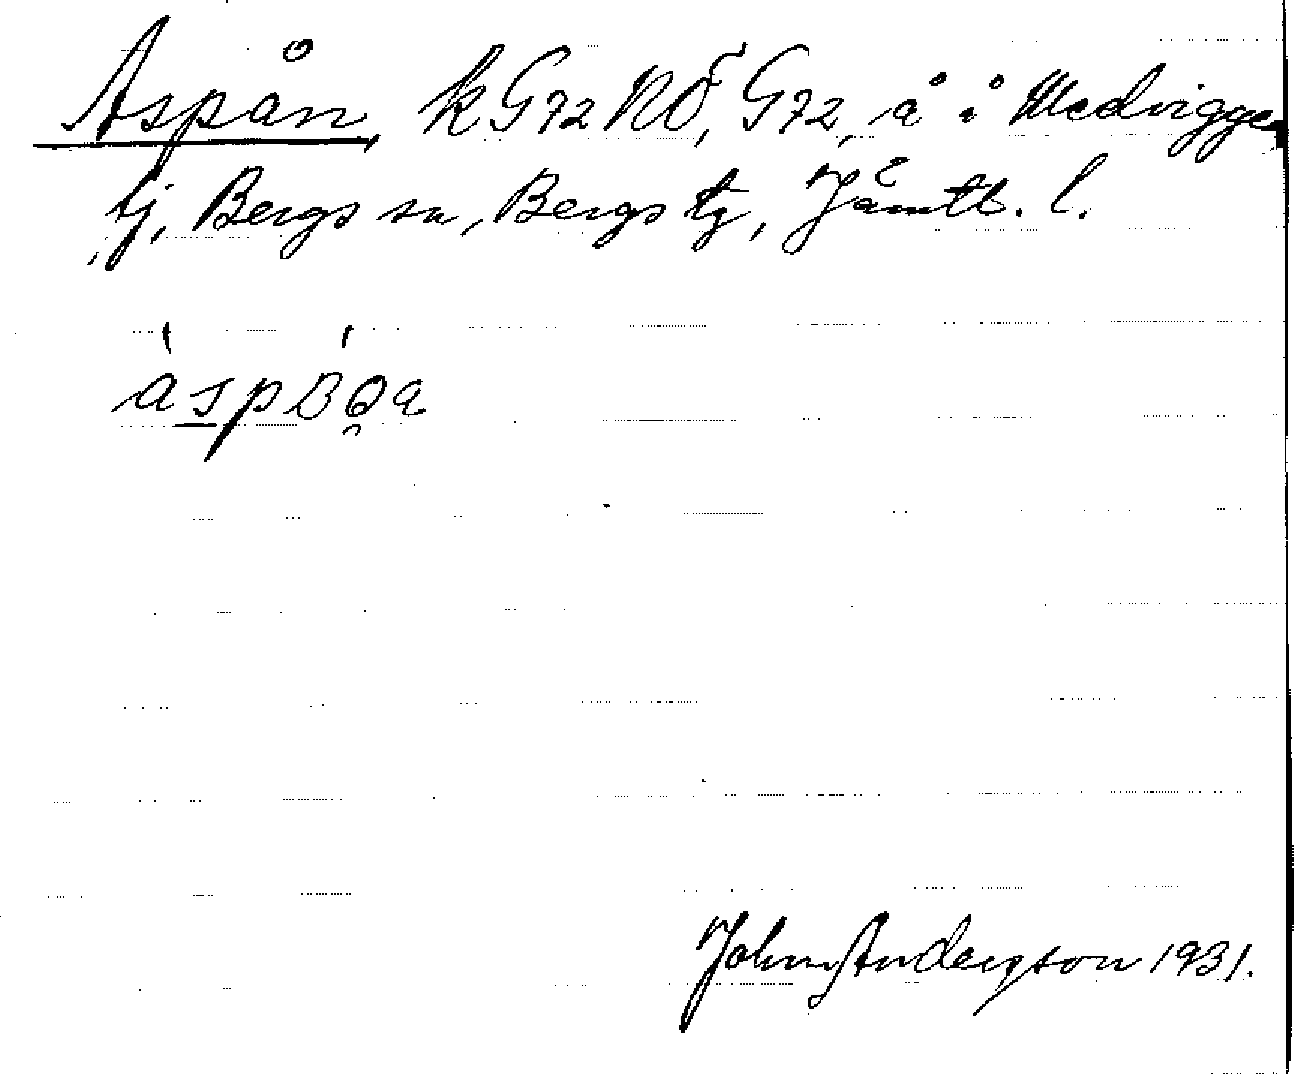 Aspån, k G72 NÖ, G72, å i Medvigge
tj, Bergs sn, Bergs tg, Jämtl. l.
John Andersson 1931.